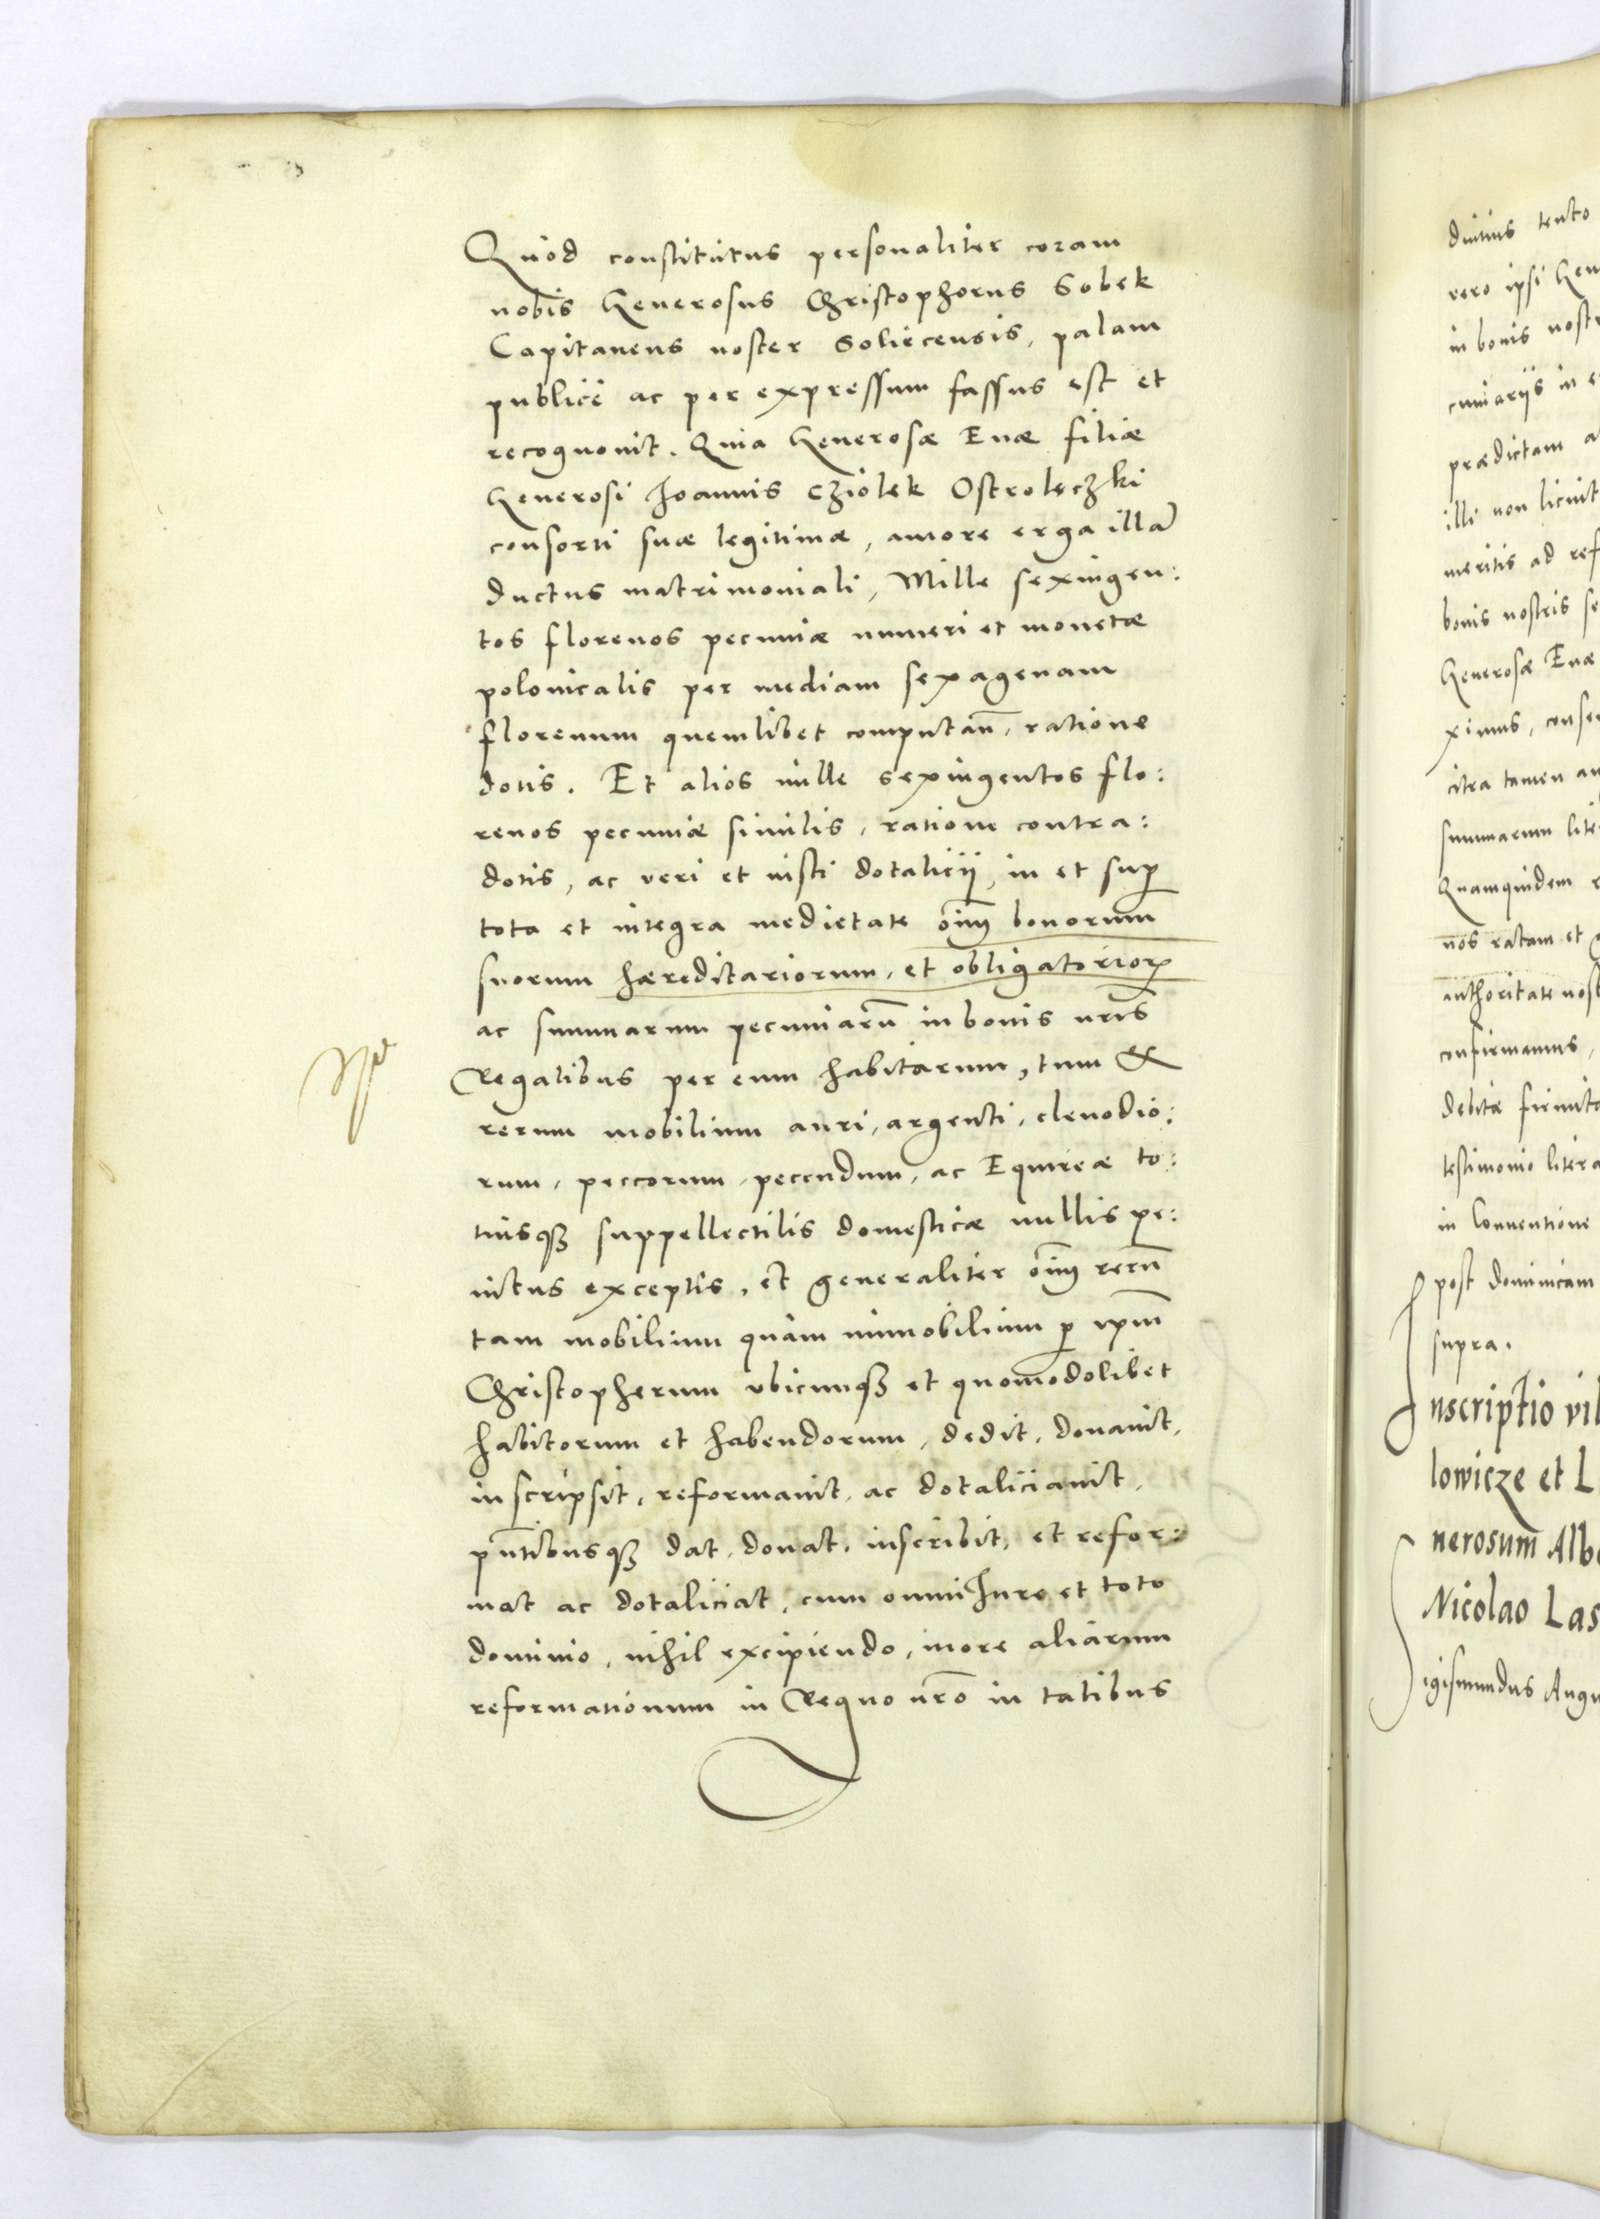 Quod constitutus personaliter coram
nobis Generosus Christophorus Sobek
Capitaneus noster Soliecensis, palam
publicè ac per expressum fassus est et
recognouit. Quia Generosæ Euæ filiæ
Generosi Joannis Cziolek Ostrolęczki
consorti suæ legitimæ, amore erga illā
ductus matrimoniali, Mille sexingen:
tos florenos pecuniæ numeri et monetæ
polonicalis per mediam sexagenam
florenum quemlibet computañ, ratione
dotis. Et alios mille sexingentos flo:
renos pecuniæ similis, ratione contra:
dotis, ac veri et iusti dotalicij, in et sup
tota et integra medietate oīm bonorum
suorum hæreditariorum, et obligatorioꝝ
ac summarum pecuniarū in bonis nr̄is
Regalibus per eum habitarum, tum &
rerum mobilium auri, argenti, clenodio:
rum, peccorum, pecudum, ac Equireæ to:
tiusqꝫ suppellectilis domesticæ nullis pe:
nitus exceptis, et generaliter oīm rerū
tam mobilium quàm immobilium ꝑ ipm̄
Christopherum vbicunqꝫ et quomodolibet
habitorum et habendorum, dedit, donauit,
inscripsit, reformauit, ac dotaliciauit,
pñtibusqꝫ dat, donat, inscribit, et refor:
mat ac dotaliciat, cum omni Jure et toto
dominio, nihil excipiendo, more aliarum
reformationum in Regno nr̄o in talibus
diutius tento
vero ipsi Gen
in bonis nostr
cuniarijs in e
prædictam a
illi non licuit
meritis ad ref
bonis nostris se
Generosæ Euæ
ximus, conse
citra tamen au
summarum lite
Quamquidem r
nos ratam et
authoritate nost
confirmamus,
debitæ firmita
testimonio litera
in Conuentione
post dominicam
supra.
Inscriptio vil
lowicze et L
nerosum Albe
Nicolao Las
Sigismundus Augu